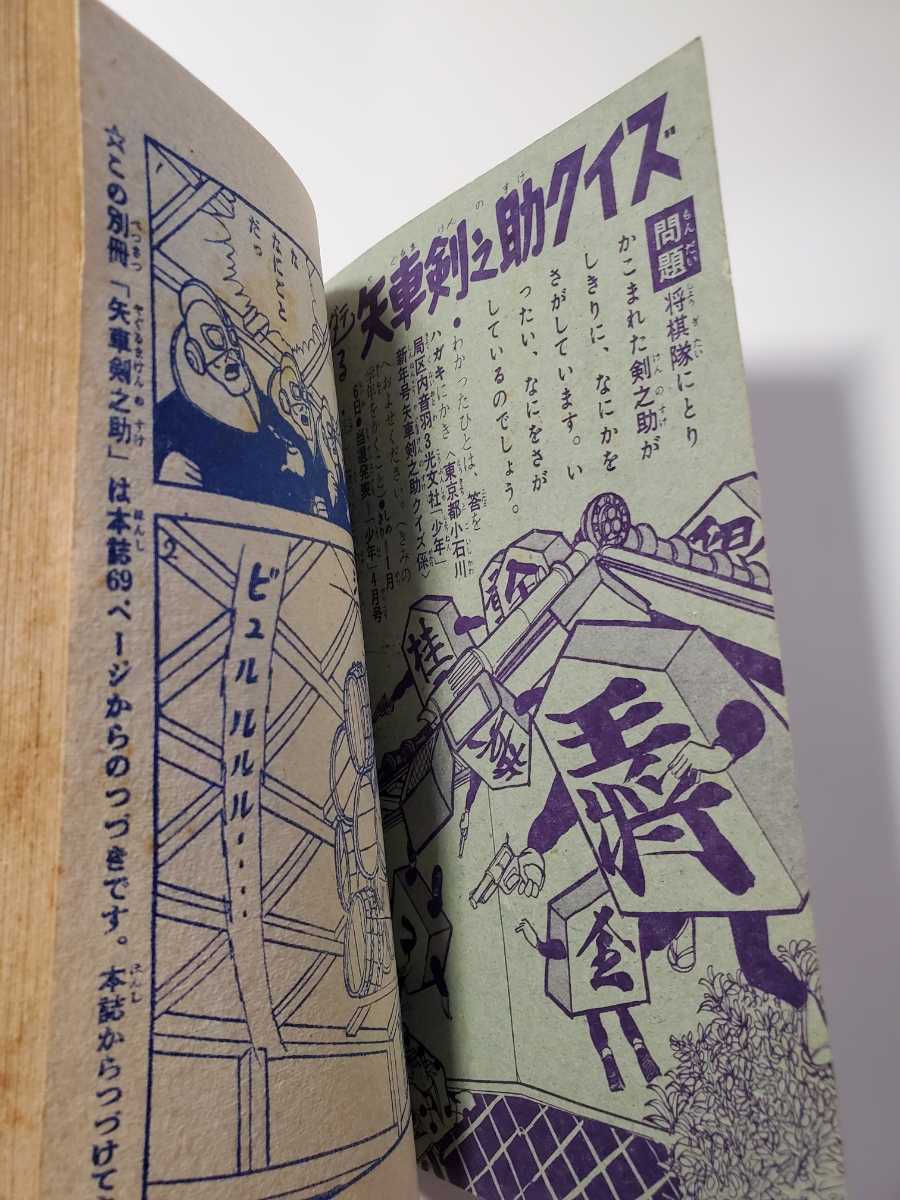 矢車剣之助クイズ
問題
将棋隊にとり
かこまれた剣之助が
しきりに、なにかを
さがしています。い
ったい、なにをさが
しているのでしょう。
・わかったひとは、答を
ハガキにかき〈東京都小石川
局区内音羽3光文社「少年」
新年号矢車剣之助クイズ係〉
へおよせください。〈きみの
学年をかくこと〉
6日●当選発表―「少年」4月号
桂
金
玉将
金
な
なにごと
だっ
2
ビュルルルル……
☆この別冊「矢車剣之助」は本誌69ページからのつづきです。本誌からつづけて